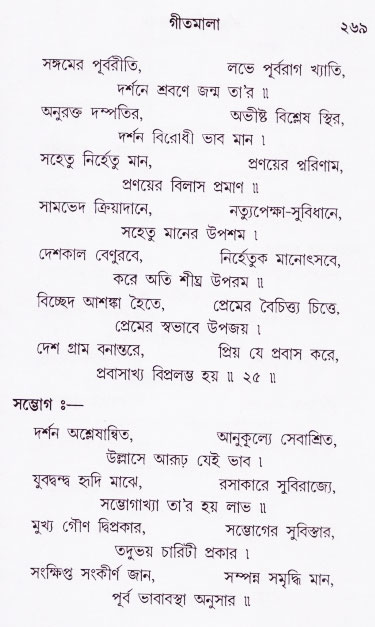 গীতমালা ২৬৯
সঙ্গমের পূর্বরীতি, লভে পূর্বরাগ খ্যাতি,
দর্শনে শ্রবণে জন্ম তা'র ॥
অনুরক্ত দম্পতির, অভীষ্ট বিশ্লেষ স্থির,
দর্শন বিরোধী ভাব মান ।
সহেতু নির্হেতু মান, প্রণয়ের পরিণাম,
প্রণয়ের বিলাস প্রমাণ ॥
সামভেদ ক্রিয়াদানে, নত্যুপেক্ষা-সুবিধানে,
সহেতু মানের উপশম ।
দেশকাল বেণুরবে, নির্হেতুক মানোৎসবে,
করে অতি শীঘ্র উপরম ॥
বিচ্ছেদ আশঙ্কা হৈতে, প্রেমের বৈচিত্ত্য চিত্তে,
প্রেমের স্বভাবে উপজয় ।
দেশ গ্রাম বনান্তরে, প্রিয় যে প্রবাস করে,
প্রবাসাখ্য বিপ্রলম্ভ হয় ॥ ২৫ ॥
সম্ভোগ ঃ—
দর্শন অশ্লেষান্বিত, আনুকূল্যে সেবাশ্রিত,
উল্লাসে আরূঢ় যেই ভাব ।
যুবদ্বন্দ্ব হৃদি মাঝে, রসাকারে সুবিরাজ্যে,
সম্ভোগাখ্যা তা'র হয় লাভ ॥
মুখ্য গৌণ দ্বিপ্রকার, সম্ভোগের সুবিস্তার,
তদুভয় চারিটী প্রকার ।
সংক্ষিপ্ত সংকীর্ণ জান, সম্পন্ন সমৃদ্ধি মান,
পূর্ব ভাবাবস্থা অনুসার ॥